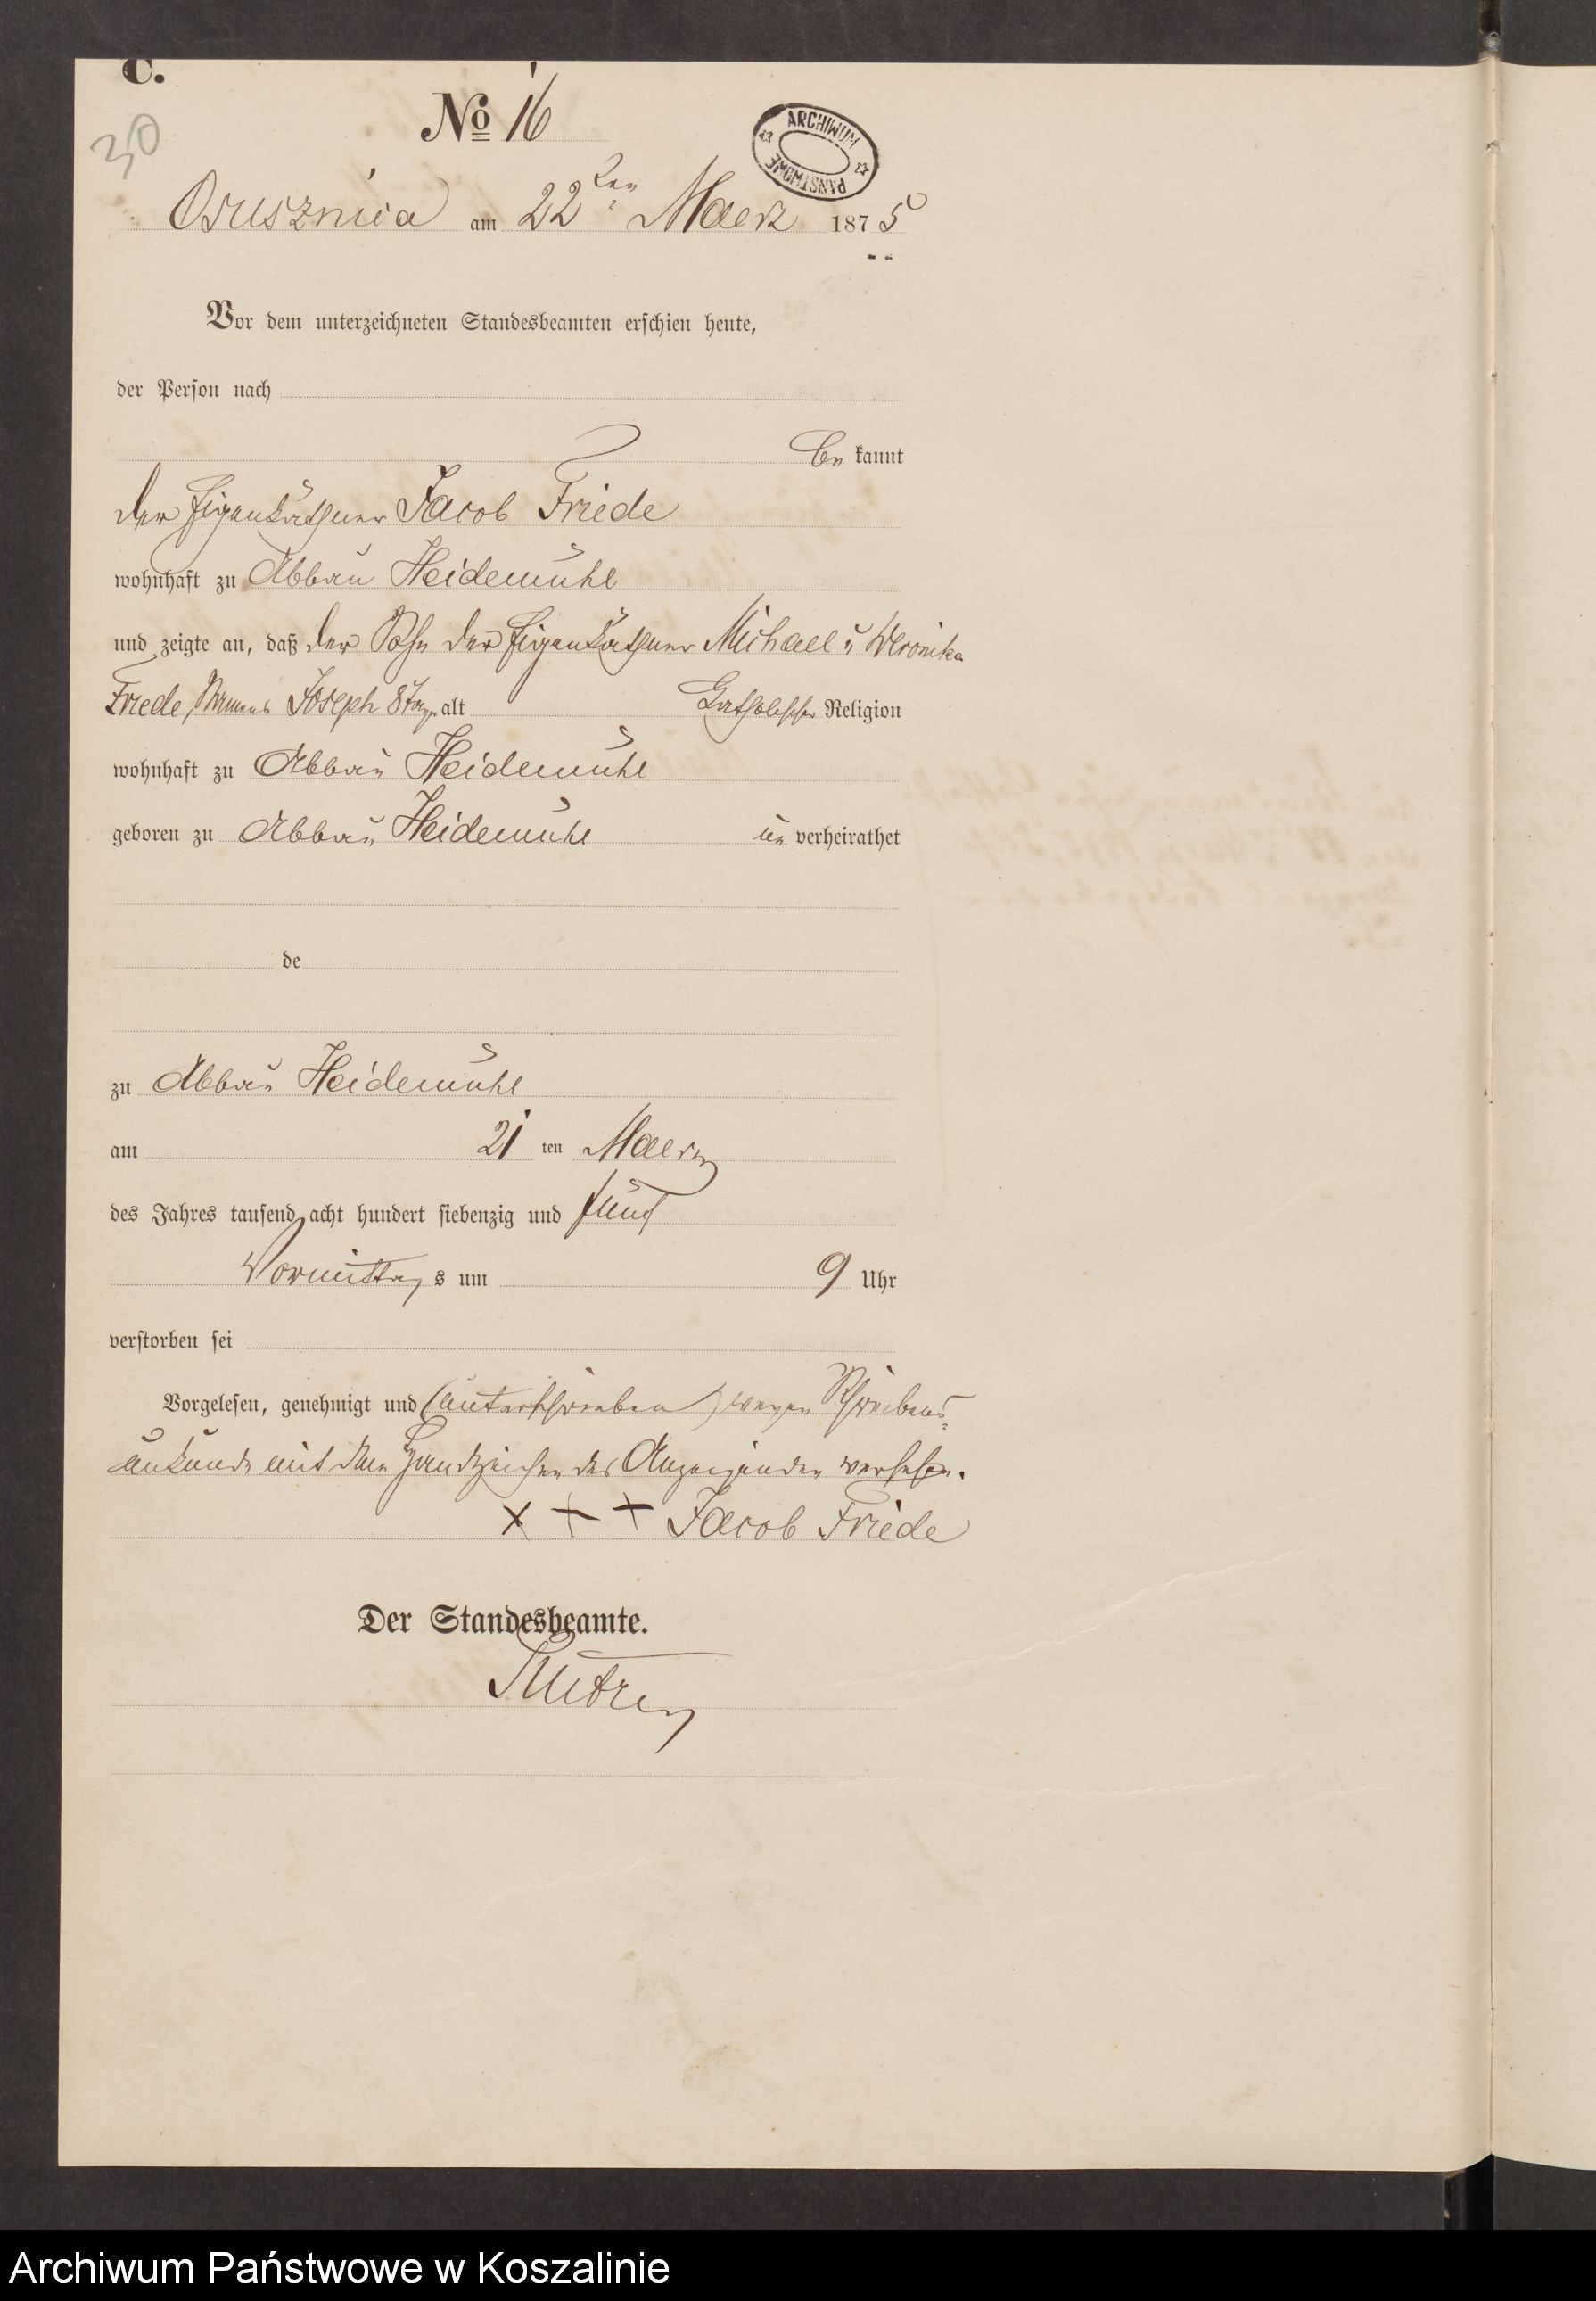 C.
30
No 16
ARCHIWUM PAŃSTWOWE
Osusznica am 22ten Maerz 1875
Vor dem unterzeichneten Standesbeamten erschien heute,
der Person nach
be kannt
der Eigenkäthner Jacob Friede
wohnhaft zu Abbau Heidemühl
und zeigte an, daß der Sohn der Eigenkäthner Michael u Veronika
Friede, Namens Joseph 8 Tage alt Katholischer Religion
wohnhaft zu Abbau Heidemühl
geboren zu Abbau Heidemühl un verheirathet
de
zu Abbau Heidemühl
am 21 ten Maerz
des Jahres tausend acht hundert siebenzig und fünf
Vormittag s um 9 Uhr
verstorben sei
Vorgelesen, genehmigt und (unterschrieben) wegen Schreibens-
unkunde mit dem Handzeichen des Anzeigenden versehen.
x + + Jacob Friede
Der Standesbeamte.
Archiwum Państwowe w Koszalinie